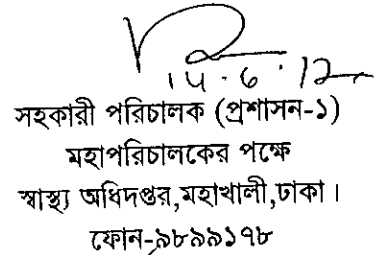 14.6.12
সহকারী পরিচালক (প্রশাসন-১)
মহাপরিচালকের পক্ষে
স্বাস্থ্য অধিদপ্তর,মহাখালী,ঢাকা।
ফোন-৯৮৯৯১৭৮